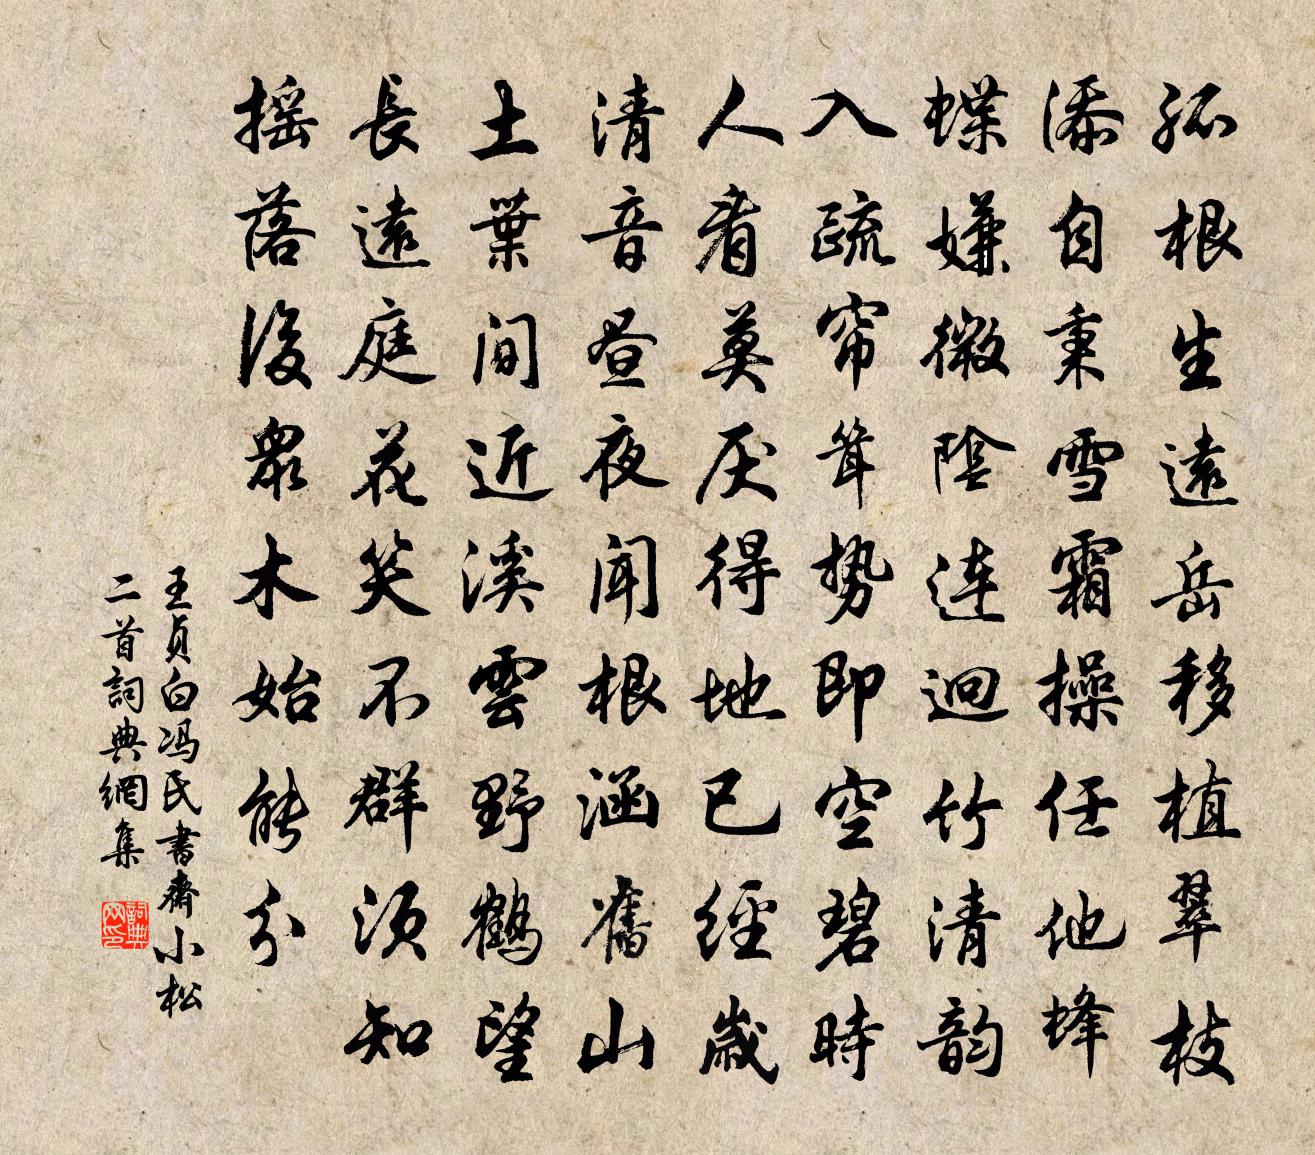 孤根生遠岳移植翠枝
添自秉雪霜操任他蜂
蝶嫌微陰連迥竹清韵
入疏帘耸势即空碧時
人看莫厌得地已經歲
清音晝夜聞根涵舊山
土葉間近溪雲野鶴望
長遠庭花笑不群須知
摇落後眾木始能分
王贞白冯氏書齋小松
二首詞典網集
詞典网印